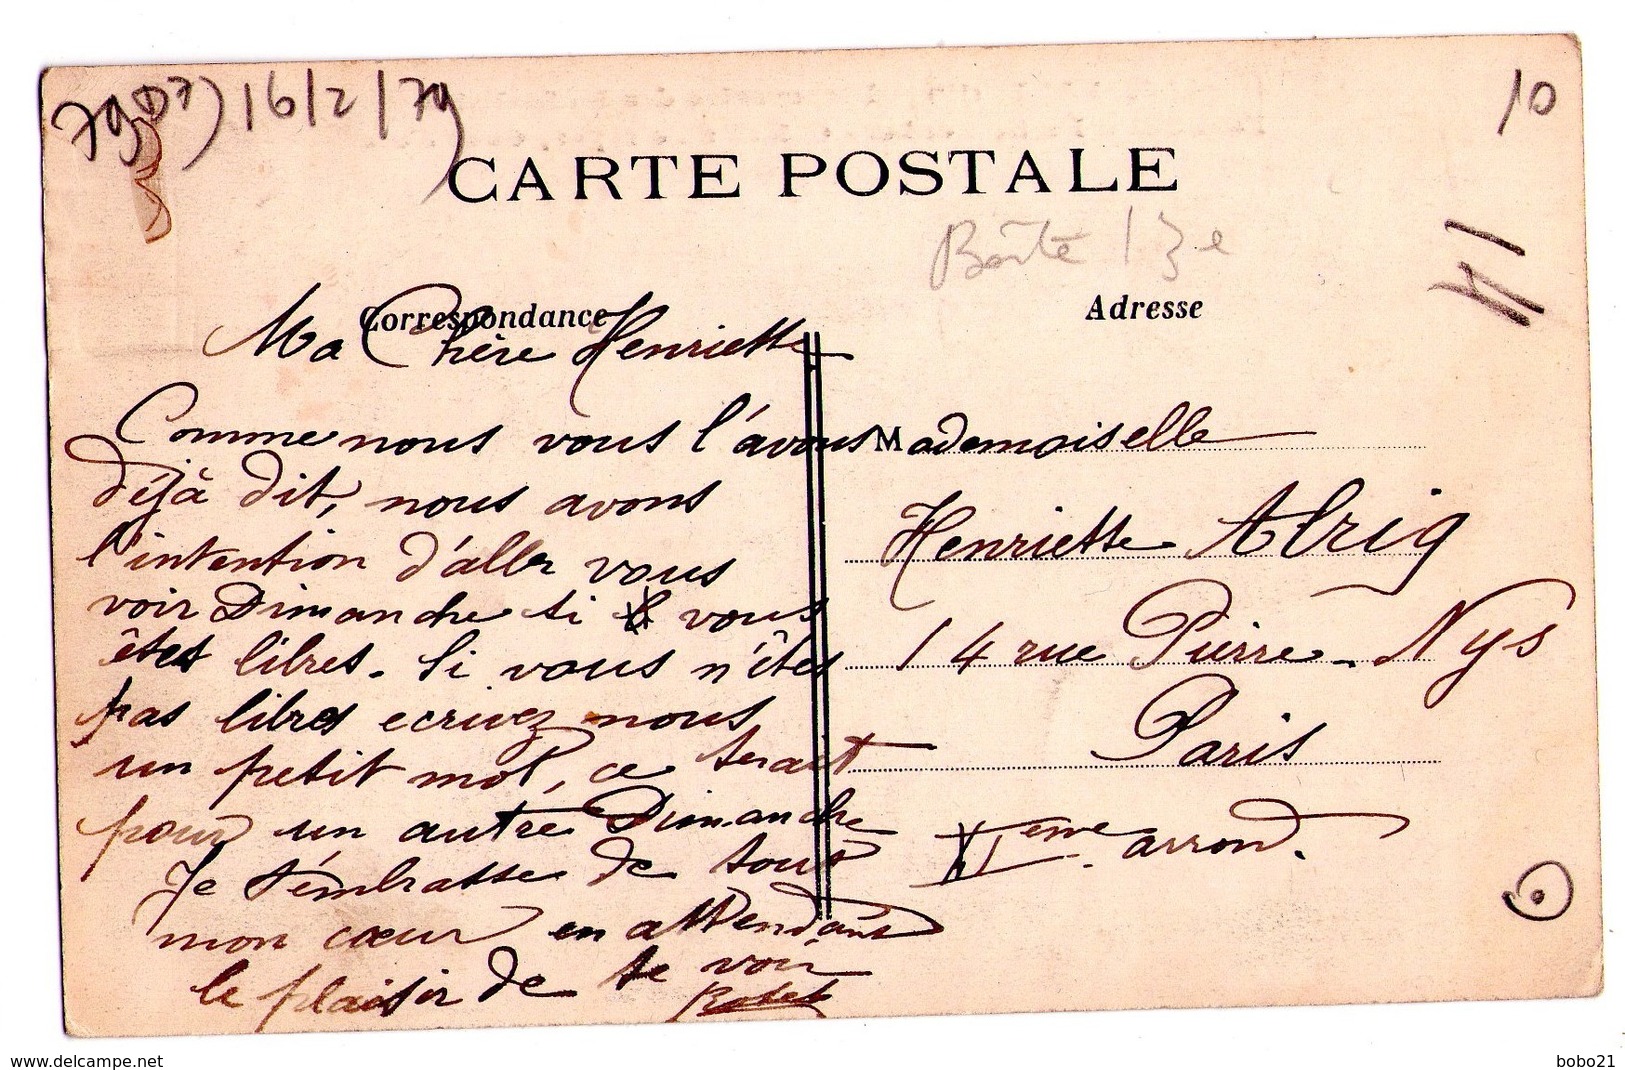 16/2/79
10
CARTE POSTALE
Boîte 13e
41
Correspondance
Adresse
Ma Chère Henriette
Comme nous vous l'avons
déjà dit, nous avons
l'intention d'aller vous
voir Dimanche si vous
êtes libres. Si vous n'êtes
pas libres ecrivez nous
un petit mot, ce serait
pour un autre Dimanche
Je t'embrasse de tout
mon cœur en attendant
le plaisir de te voir
Mademoiselle
Henriette Alrig
14 rue Pierre-Nys
Paris
XIème arrond.
www.delcampe.net
bobo21